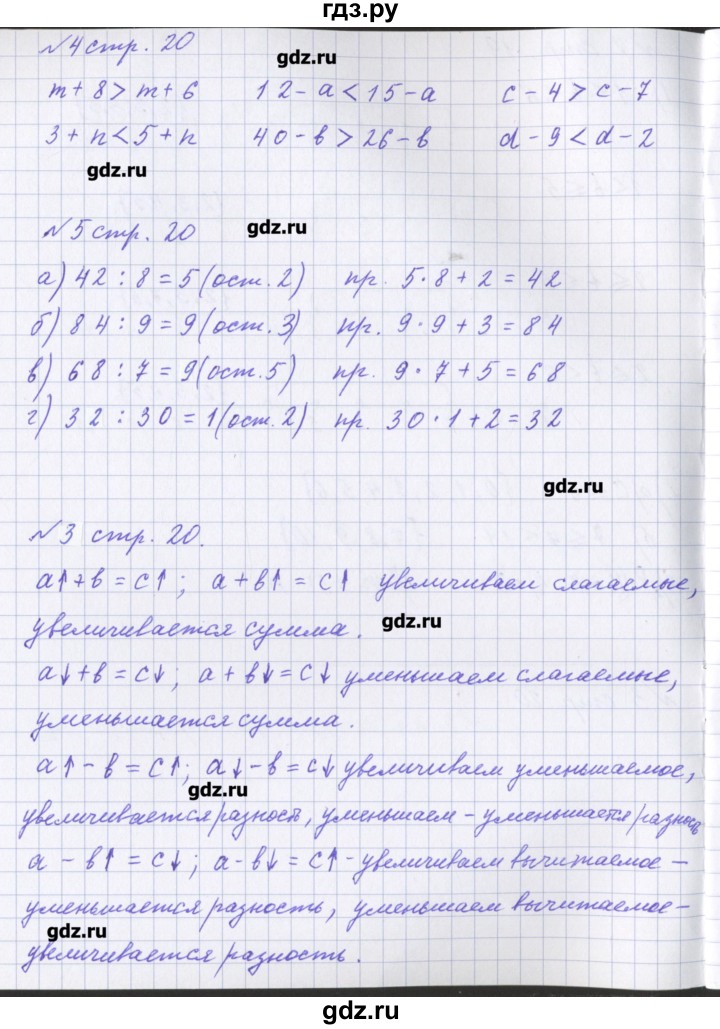 гдз.ру
№4 стр. 20
gdz.ru
m + 8 > m + 6 12 - a < 15 - a c - 4 > c - 7
3 + n < 5 + n 40 - в > 26 - в d - 9 < d - 2
gdz.ru
№5 стр. 20
gdz.ru
а) 42 : 8 = 5 (ост. 2) пр. 5 · 8 + 2 = 42
б) 84 : 9 = 9 (ост. 3) пр. 9 · 9 + 3 = 84
в) 68 : 7 = 9 (ост. 5) пр. 9 · 7 + 5 = 68
г) 32 : 30 = 1 (ост. 2) пр. 30 · 1 + 2 = 32
gdz.ru
№3 стр. 20.
а↑ + в = с↑ ; а + в↑ = с↑ увеличиваем слагаемые,
увеличивается сумма.
gdz.ru
а↓ + в = с↓ ; а + в↓ = с↓ уменьшаем слагаемые,
уменьшается сумма.
а↑ - в = с↑ ; а↓ - в = с↓ увеличиваем уменьшаемое,
gdz.ru
увеличивается разность, уменьшаем - уменьшается разность
а - в↑ = с↓ ; а - в↓ = с↑ - увеличиваем вычитаемое -
уменьшается разность, уменьшаем вычитаемое -
gdz.ru
увеличивается разность.
gdz.ru